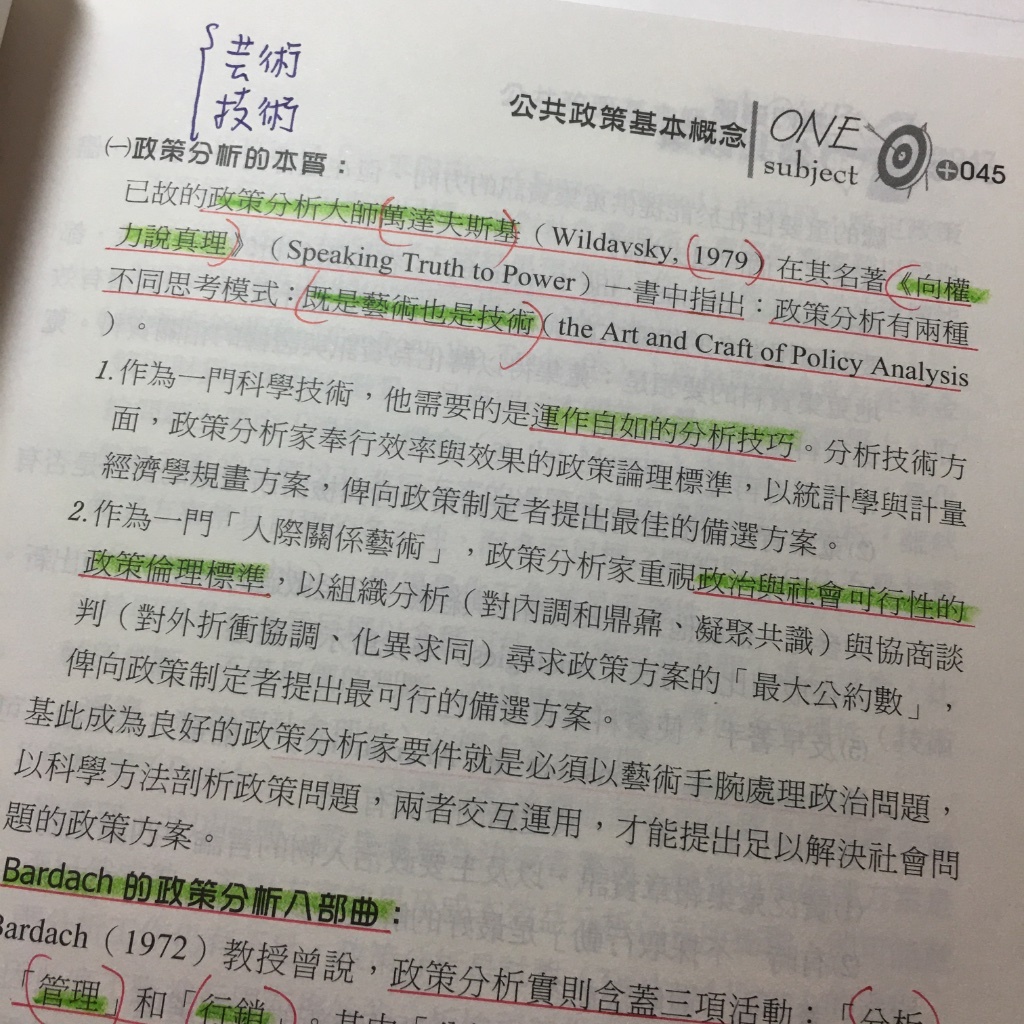 芸術
技術
公共政策基本概念 ONE subject 045
㈠政策分析的本質：
已故的政策分析大師萬達夫斯基（Wildavsky, 1979）在其名著《向權
力說真理》（Speaking Truth to Power）一書中指出：政策分析有兩種
不同思考模式：既是藝術也是技術（the Art and Craft of Policy Analysis
）。
1.作為一門科學技術，他需要的是運作自如的分析技巧。分析技術方
面，政策分析家奉行效率與效果的政策論理標準，以統計學與計量
經濟學規畫方案，俾向政策制定者提出最佳的備選方案。
2.作為一門「人際關係藝術」，政策分析家重視政治與社會可行性的
政策倫理標準，以組織分析（對內調和鼎鼐、凝聚共識）與協商談
判（對外折衝協調、化異求同）尋求政策方案的「最大公約數」，
俾向政策制定者提出最可行的備選方案。
基此成為良好的政策分析家要件就是必須以藝術手腕處理政治問題，
以科學方法剖析政策問題，兩者交互運用，才能提出足以解決社會問
題的政策方案。
Bardach 的政策分析八部曲：
Bardach（1972）教授曾說，政策分析實則含蓋三項活動：「分析」
「管理」和「行銷」。其中